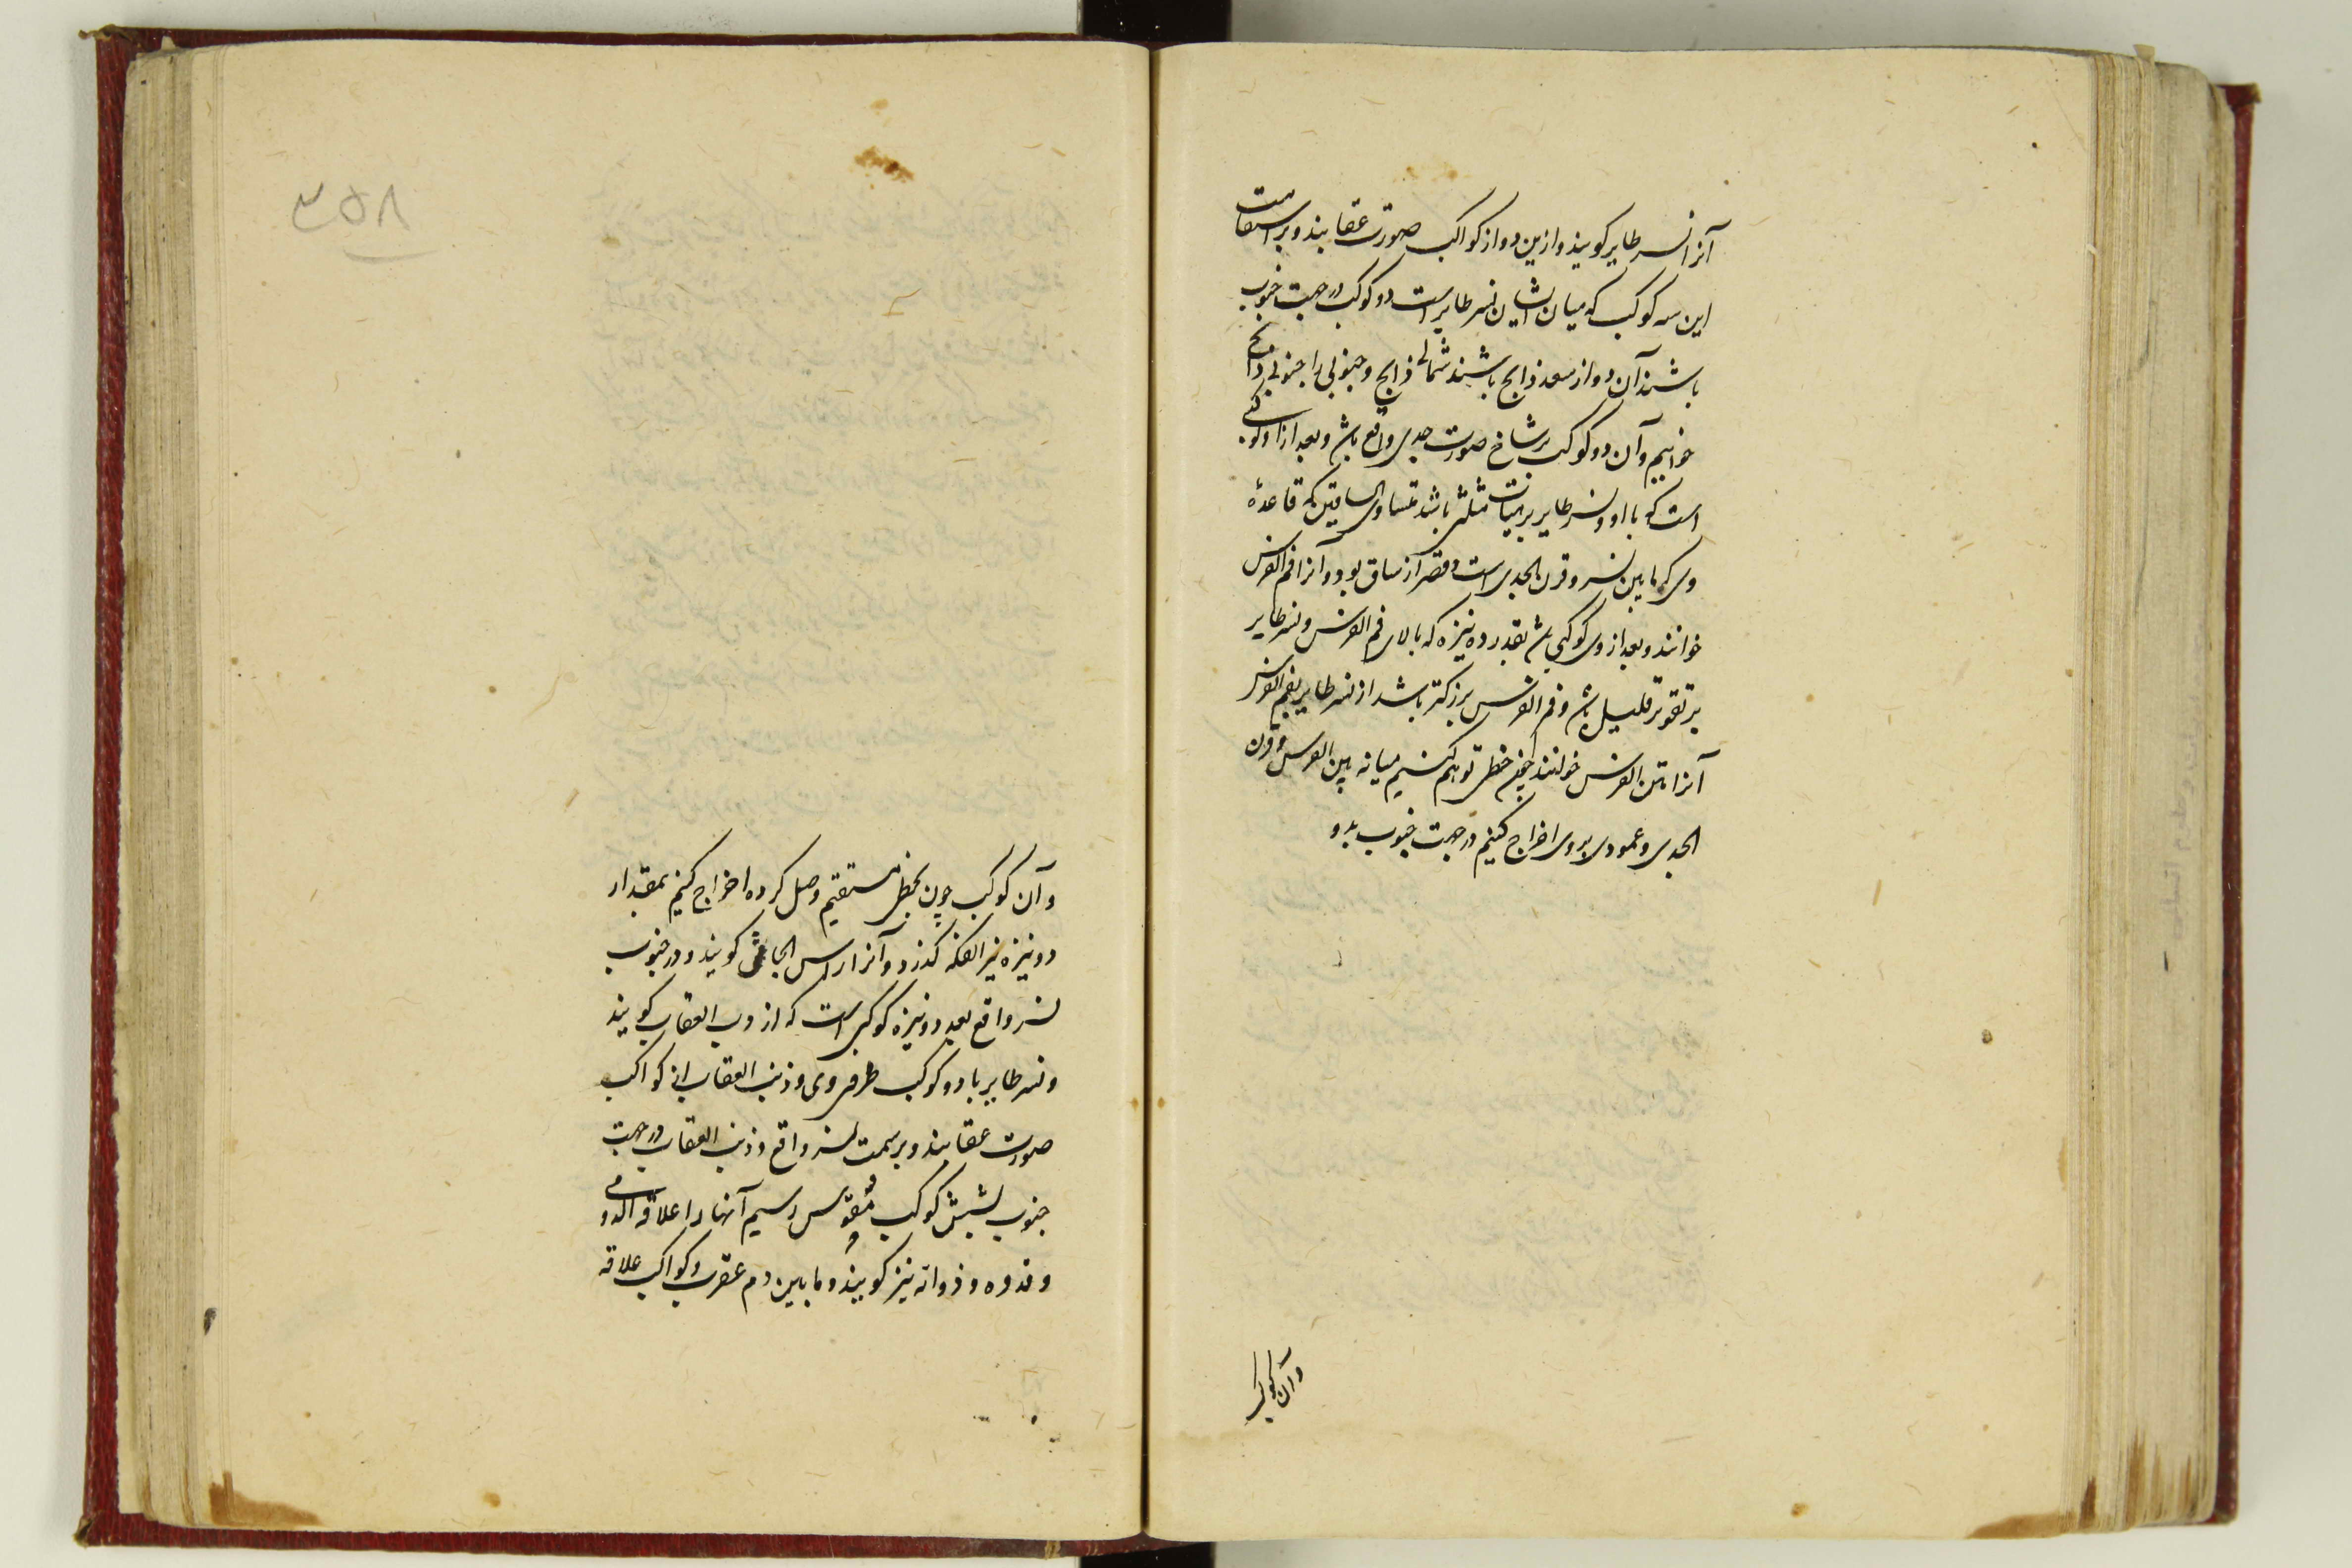 آنرا نسر طایر کویند و ازین دو از کواکب صورت عقابند و بر استقامت
این سه کوکب که میان ایشان نسر طایر است دو کوکب در جهت جنوب
باشند آن دو از سعد ذابح باشند شمالی ذابح و جنوبی را جنوبی ذابح
خوانیم و آن دو کوکب بر شاخ صورت جدی واقع باشد و بعد ازان کوکبی
است که با او و نسر طایر بر هیات مثلثی باشد متساوی الساقین که قاعدهٔ
وی که مابین نسر و قرن الجدی است اقصر از ساق بود و آنرا فم الفرس
خوانند و بعد از وی کوکبی باشد بقدر ده نیزه که بالای فم الفرس و نسر طایر
بر تقویر قلیل باشد و فم الفرس بزرکتر باشد از نسر طایر بفم الفرس
آنرا متن الفرس خوانند خطی توهم کنیم میانه بین الفرس و قرن
الجدی و عمودی بروی اخراج کنیم در جهت جنوب بدو
وآن کوکب
۳۵۸
و آن کوکب چون بخط مستقیم وصل کرده اخراج کنیم بمقدار
دو نیزه نیر الفکه گذرد و آنرا راس الجاثی کویند و در جنوب
نسر واقع بعد دو نیزه کوکبی است که از ذنب العقاب کویند
و نسر طایر با دو کوکب طرف وی و ذنب العقاب از کواکب
صورت عقابند و بر سمت نسر واقع و ذنب العقاب در جهت
جنوب بشش کوکب مقوس رسیم آنها را علاقه الدو
و ندوه و ذواته نیز کویند و مابین دم عقرب و کواکب علاقه